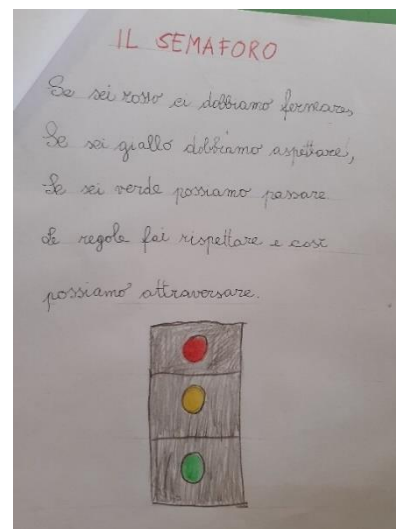 IL SEMAFORO
Se sei rosso ci dobbiamo fermare,
Se sei giallo dobbiamo aspettare,
Se sei verde possiamo passare
Le regole fai rispettare e così
possiamo attraversare.